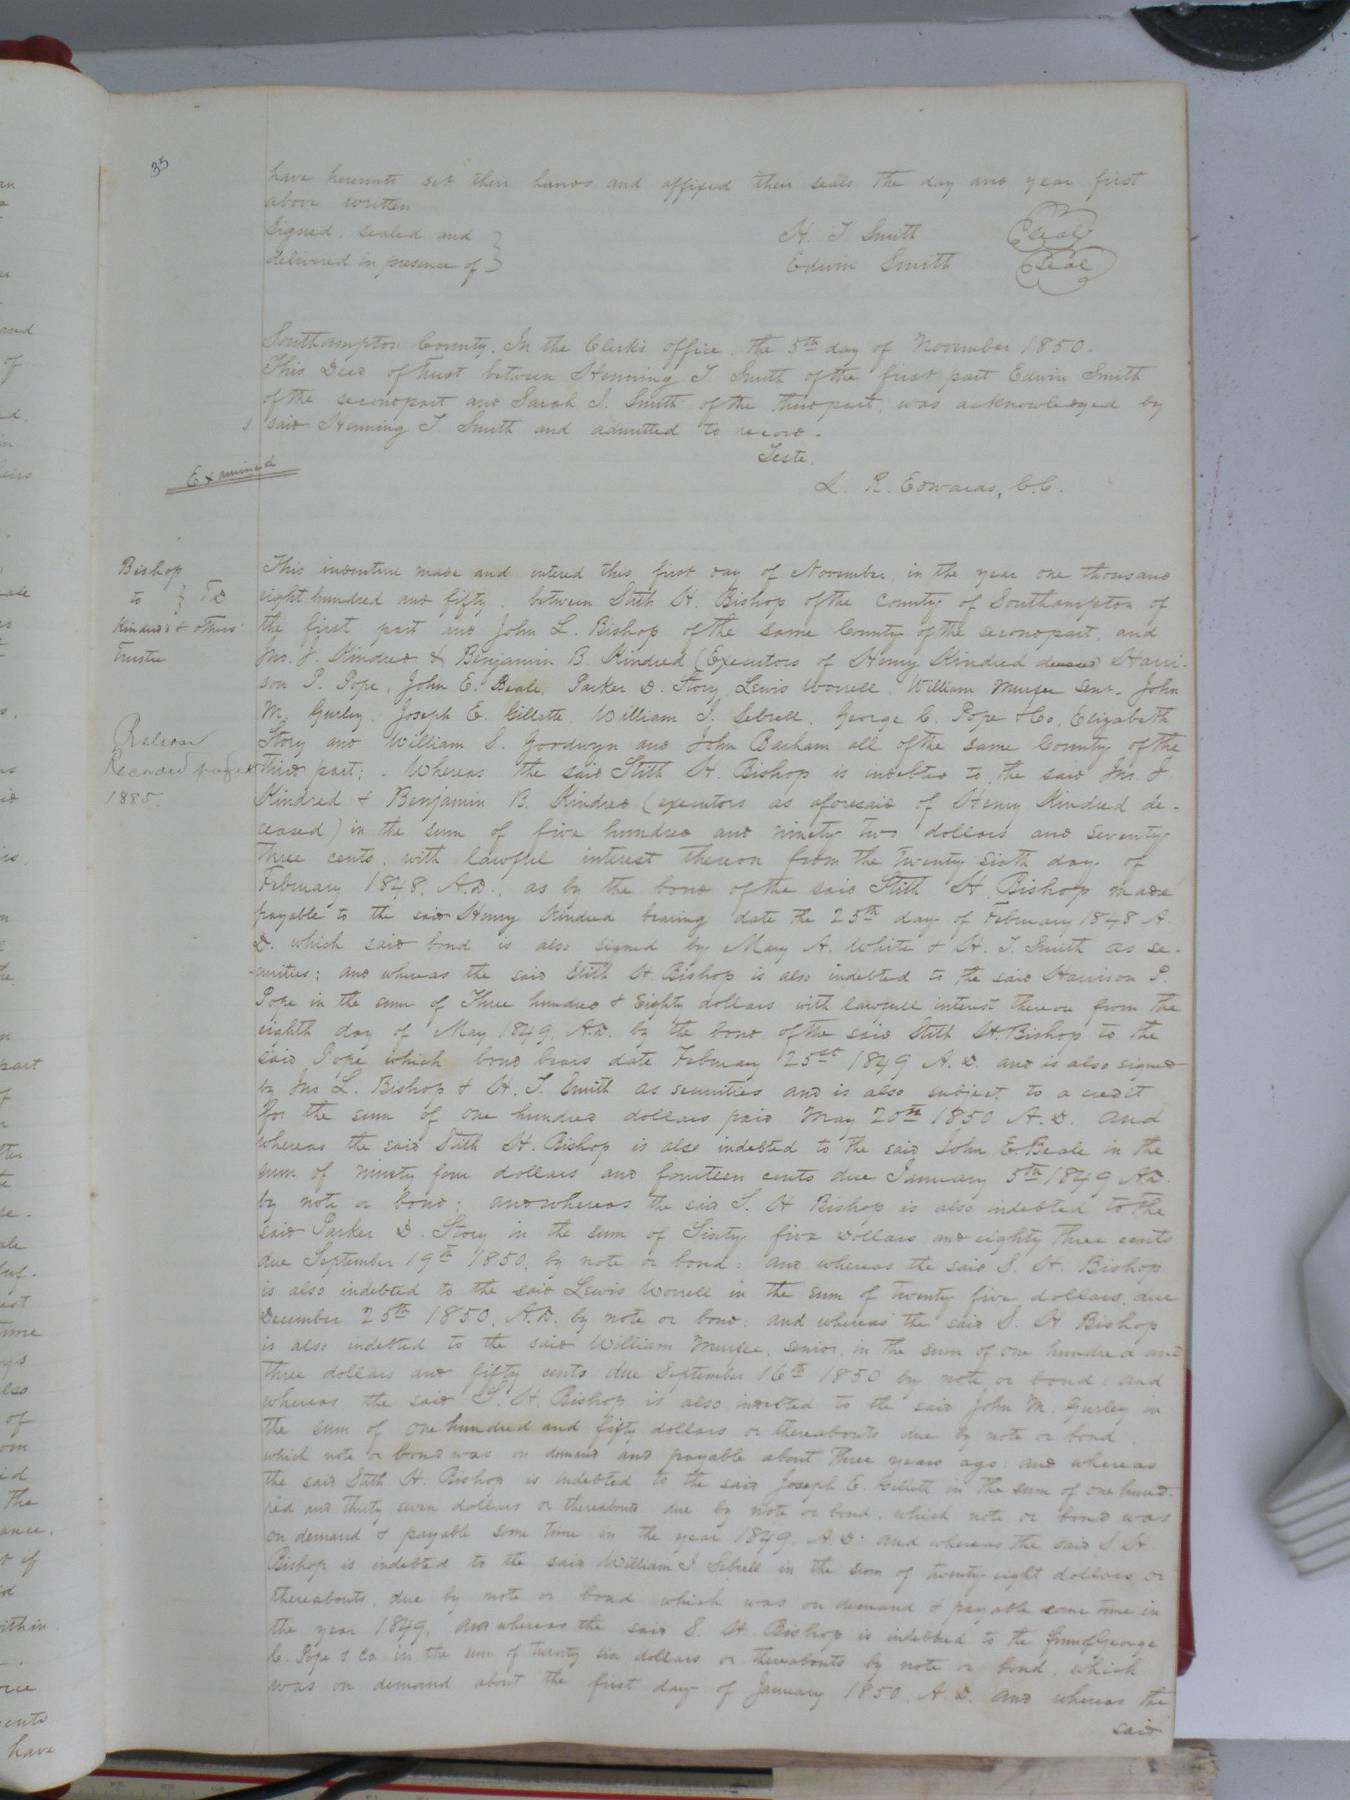 35
have hereunto set their hands and affixed their seals the day and year first
above written
Signed, sealed and
delivered in presence of
H. T. Smith seal
Edwin Smith seal
Southampton County, In the Clerk's office, the 5th day of November 1850.
This Deed of Trust between Henning T. Smith of the first part Edwin Smith
of the second part and Sarah T. Smith of the third part, was acknowledged by
said Henning T. Smith and admitted to record.
Teste.
L. R. Edwards, C.C.
Examined
Bishop
to } T.D
Kindred & others
Trustee
Release
Recorded page
1885.
This indenture made and entered this first day of November, in the year one thousand
eight hundred and fifty, between Stith H. Bishop of the County of Southampton of
the first part and John L. Bishop of the same County of the second part, and
Jno. J. Kindred & Benjamin B. Kindred (Executors of Henry Kindred deceased) Harri-
son P. Pope, John E. Beale, Parker D. Story, Lewis Worrell, William Murfee Senr. John
M. Gurley, Joseph E. Gillette, William J. Sebrell, George C. Pope & Co, Elizabeth
Story and William S. Goodwyn and John Barham all of the same County of the
third part; - Whereas the said Stith H. Bishop is indebted to the said Jno. J.
Kindred & Benjamin B. Kindred (executors as aforesaid of Henry Kindred de-
ceased) in the sum of five hundred and ninety two dollars and seventy
three cents, with lawful interest thereon from the twenty sixth day of
February 1848, A.D., as by the bond of the said Stith H. Bishop made
payable to the said Henry Kindred bearing date the 25th day of February 1848 A.
D. which said bond is also signed by Mary A. White & H. T. Smith as se-
-curities; and whereas the said Stith H. Bishop is also indebted to the said Harrison P.
Pope in the sum of Three hundred & Eighty dollars with lawfull interest thereon from the
eighth day of May 1849, A.D. by the bond of the said Stith H. Bishop to the
said Pope which bond bears date February 25 1849 A.D. and is also signed
by Jno L. Bishop & H. T. Smith as securities and is also subject to a credit
for the sum of one hundred dollars paid May 20th 1850 A.D. and
whereas the said Stith H. Bishop is also indebted to the said John E. Beale in the
sum of ninety four dollars and fourteen cents due January 5th 1849 A.D.
by note or bond; and whereas the said S. H Bishop is also indebted to the
said Parker D. Story in the sum of Sixty five dollars and eighty three cents
due September 19th 1850, by note or bond: and whereas the said S. H. Bishop
is also indebted to the said Lewis Worrell in the sum of twenty five dollars, due
December 25th 1850, A.D. by note or bond: and whereas the said S. H. Bishop
is also indebted to the said William Murfee, senior, in the sum of one hundred and
three dollars and fifty cents due September 16th 1850 by note or bond: and
whereas the said S. H. Bishop is also indebted to the said John M. Gurley in
the sum of one hundred and fifty dollars or thereabouts due by note or bond,
which note or bond was on demand and payable about three years ago: and whereas
the said Stith H. Bishop is indebted to the said Joseph E. Gillett in the sum of one hund-
red and thirty seven dollars or thereabouts due by note or bond, which note or bond was
on demand & payable some time in the year 1849, A.D: and whereas the said S. H
Bishop is indebted to the said William J. Sebrell in the sum of twenty eight dollars or
thereabouts, due by note or bond which was on demand & payable some time in
the year 1849, and whereas the said S. H. Bishop is indebted to the firm of George
C. Pope & Co in the sum of twenty six dollars or thereabouts by note or bond, which
was on demand about the first day of January 1850, A.D. and whereas the
said